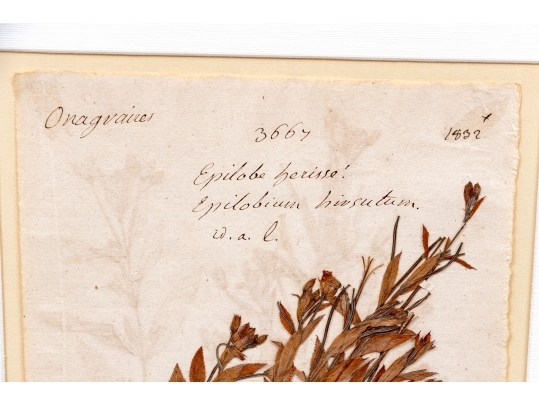 Onagraires
3667
1832
Epilobe herissé.
Epilobium hirsutum.
id. a. l.